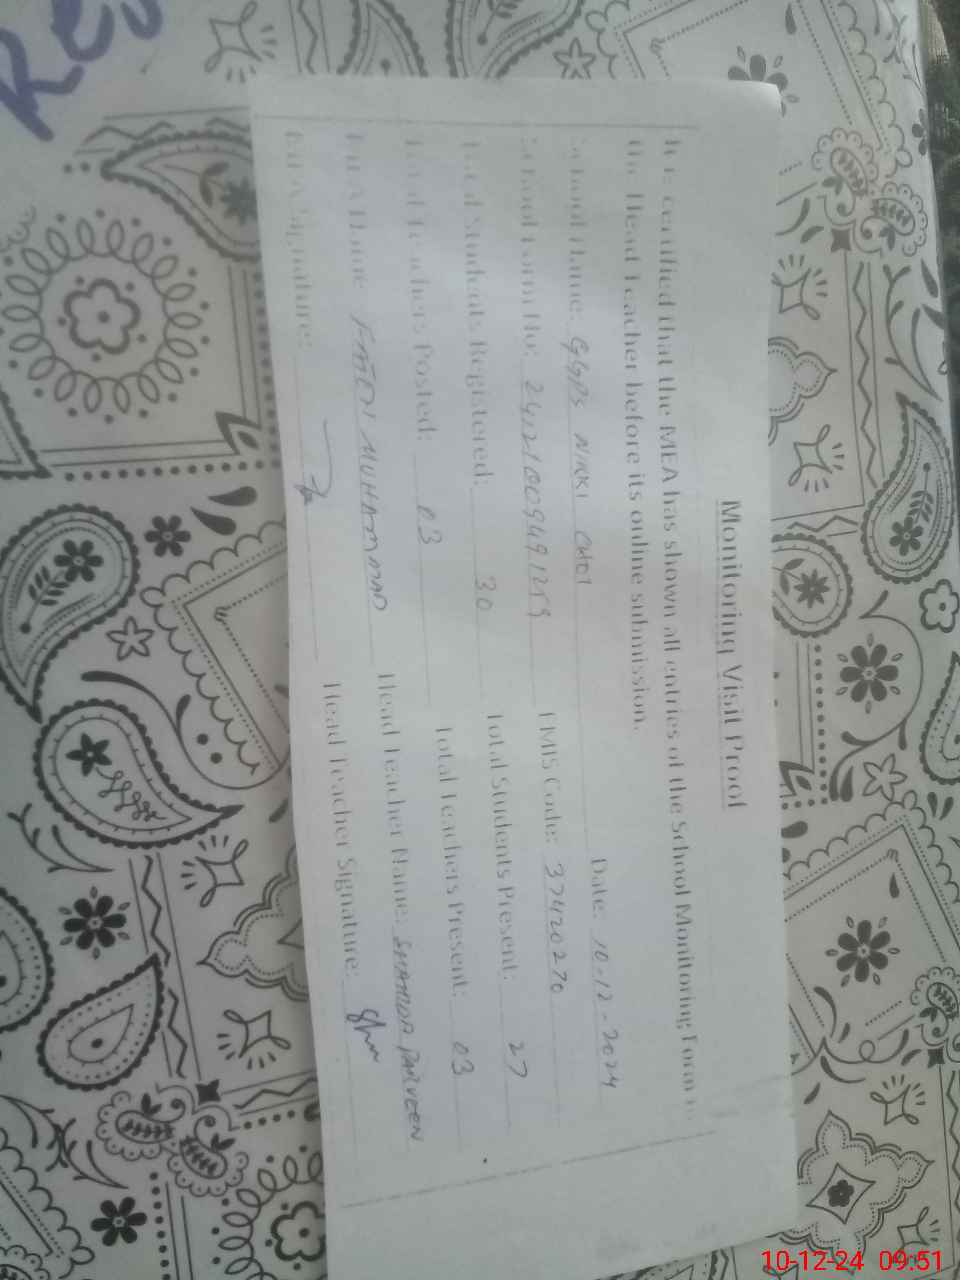 Monitoring Visit Proof
It is certified that the MEA has shown all entries of the School Monitoring Form to
the Head Teacher before its online submission.
School Name: GGPS NIKKI Date: 10-12-2024
School Form No: EMIS Code: 37420270
Total Students Registered: 30 Total Students Present: 27
Total Teachers Posted: 03 Total Teachers Present: 03
MEA Name: MUHAMMAD Head Teacher Name: PARVEEN
MEA Signature: Head Teacher Signature:
10-12-24 09:51